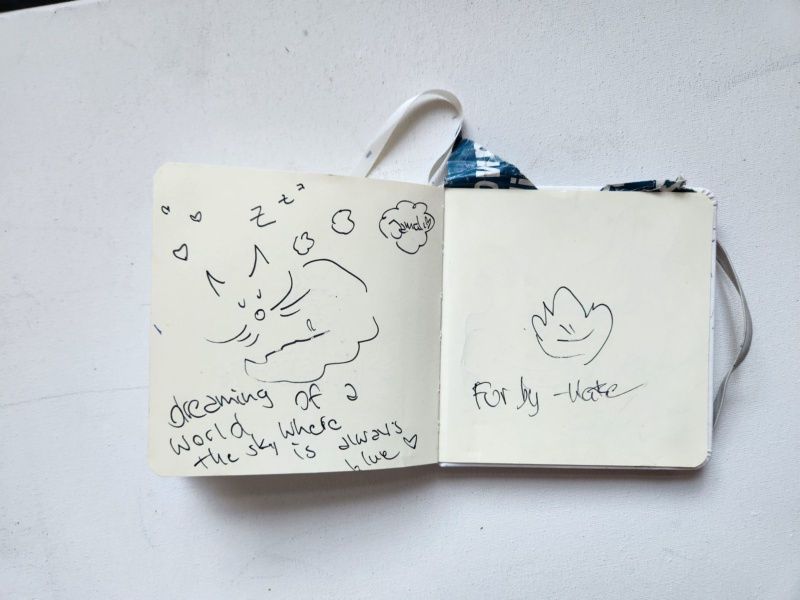 z z z
dreaming of a
world where
the sky is always
blue
For by - Kate